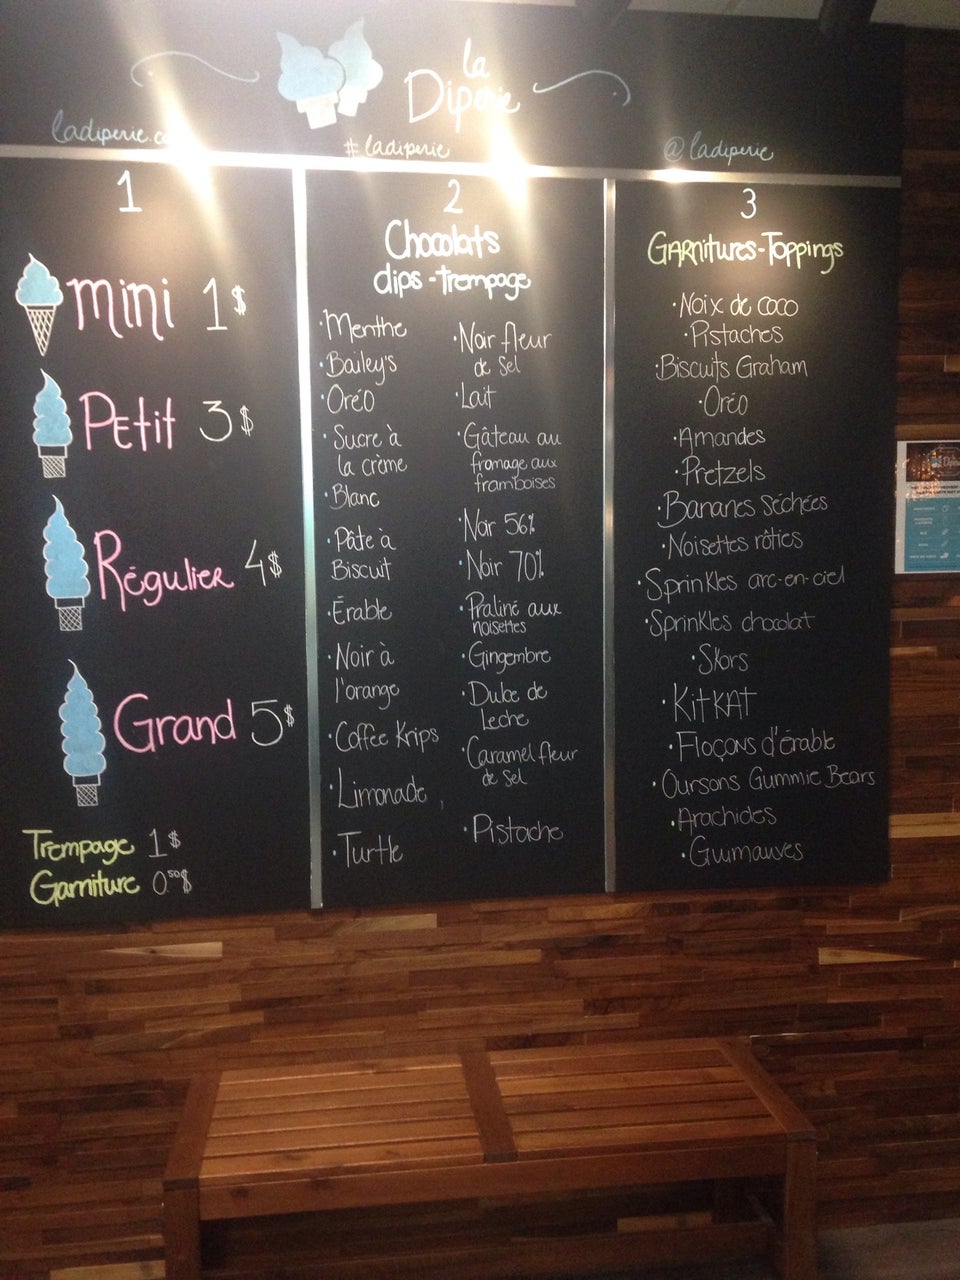 la
Diperie
ladiperie.c
#ladiperie
@ladiperie
1
mini 1$
Petit 3$
Régulier 4$
Grand 5$
Trempage 1$
Garniture 0.50$
2
Chocolats
dips-trempage
·Menthe
·Bailey's
·Oréo
·Sucre à
la crème
·Blanc
·Pâte à
Biscuit
·Érable
·Noir à
l'orange
·Coffee Krips
·Limonade
·Turtle
·Noir fleur
de sel
·Lait
·Gâteau au
fromage aux
framboises
·Noir 56%
·Noir 70%
·Praliné aux
noisettes
·Gingembre
·Dulce de
Leche
·Caramel fleur
de sel
·Pistache
3
GARNitures-Toppings
·Noix de coco
·Pistaches
·Biscuits Graham
·Oréo
·Amandes
·Pretzels
·Bananes séchées
·Noisettes rôties
·Sprinkles arc-en-ciel
·Sprinkles chocolat
·Skors
·KitKAT
·Floçons d'érable
·Oursons Gummie Bears
·Arachides
·Guimauves